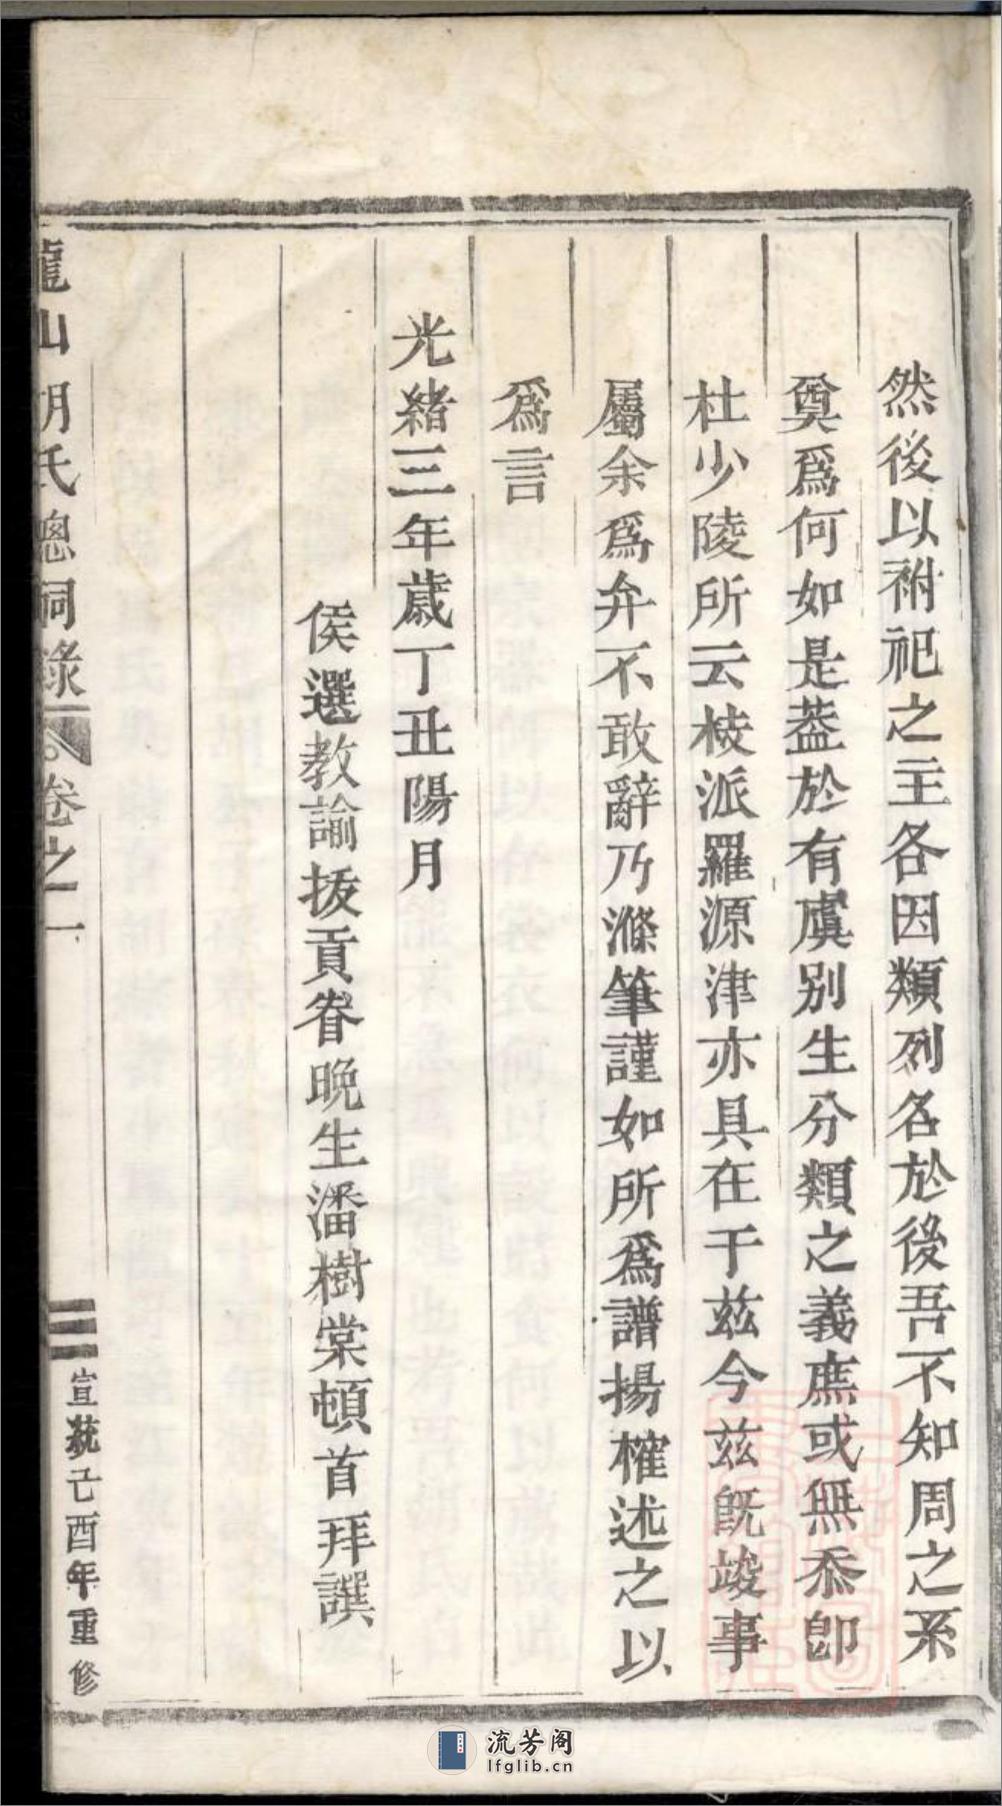 然後以祔祀之主各因類列名於後吾不知周之系
奠爲何如是葢於有虞别生分類之義庶或無忝卽
杜少陵所云棱派羅源津亦具在于茲今茲旣竣事
屬余爲弁不敢辭乃滌筆謹如所爲譜揚榷述之以
爲言
光緒三年歲丁丑陽月
侯選教諭拔貢眷晚生潘樹棠頓首拜譔
龍山胡氏總祠錄 卷之一
宣統己酉年重修
流芳阁
lfglib.cn